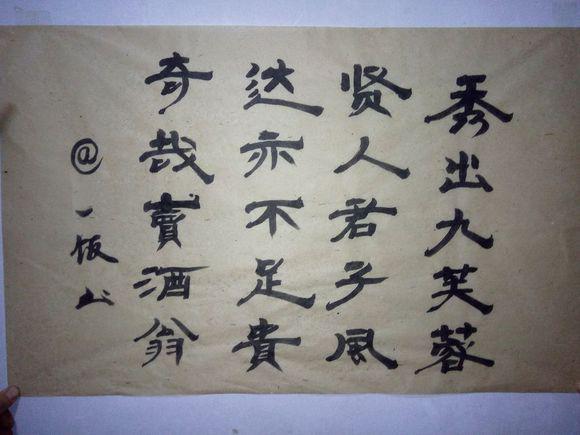 秀出九芙蓉
贤人君子風
达亦不足貴
奇哉賣酒翁
@一饭山